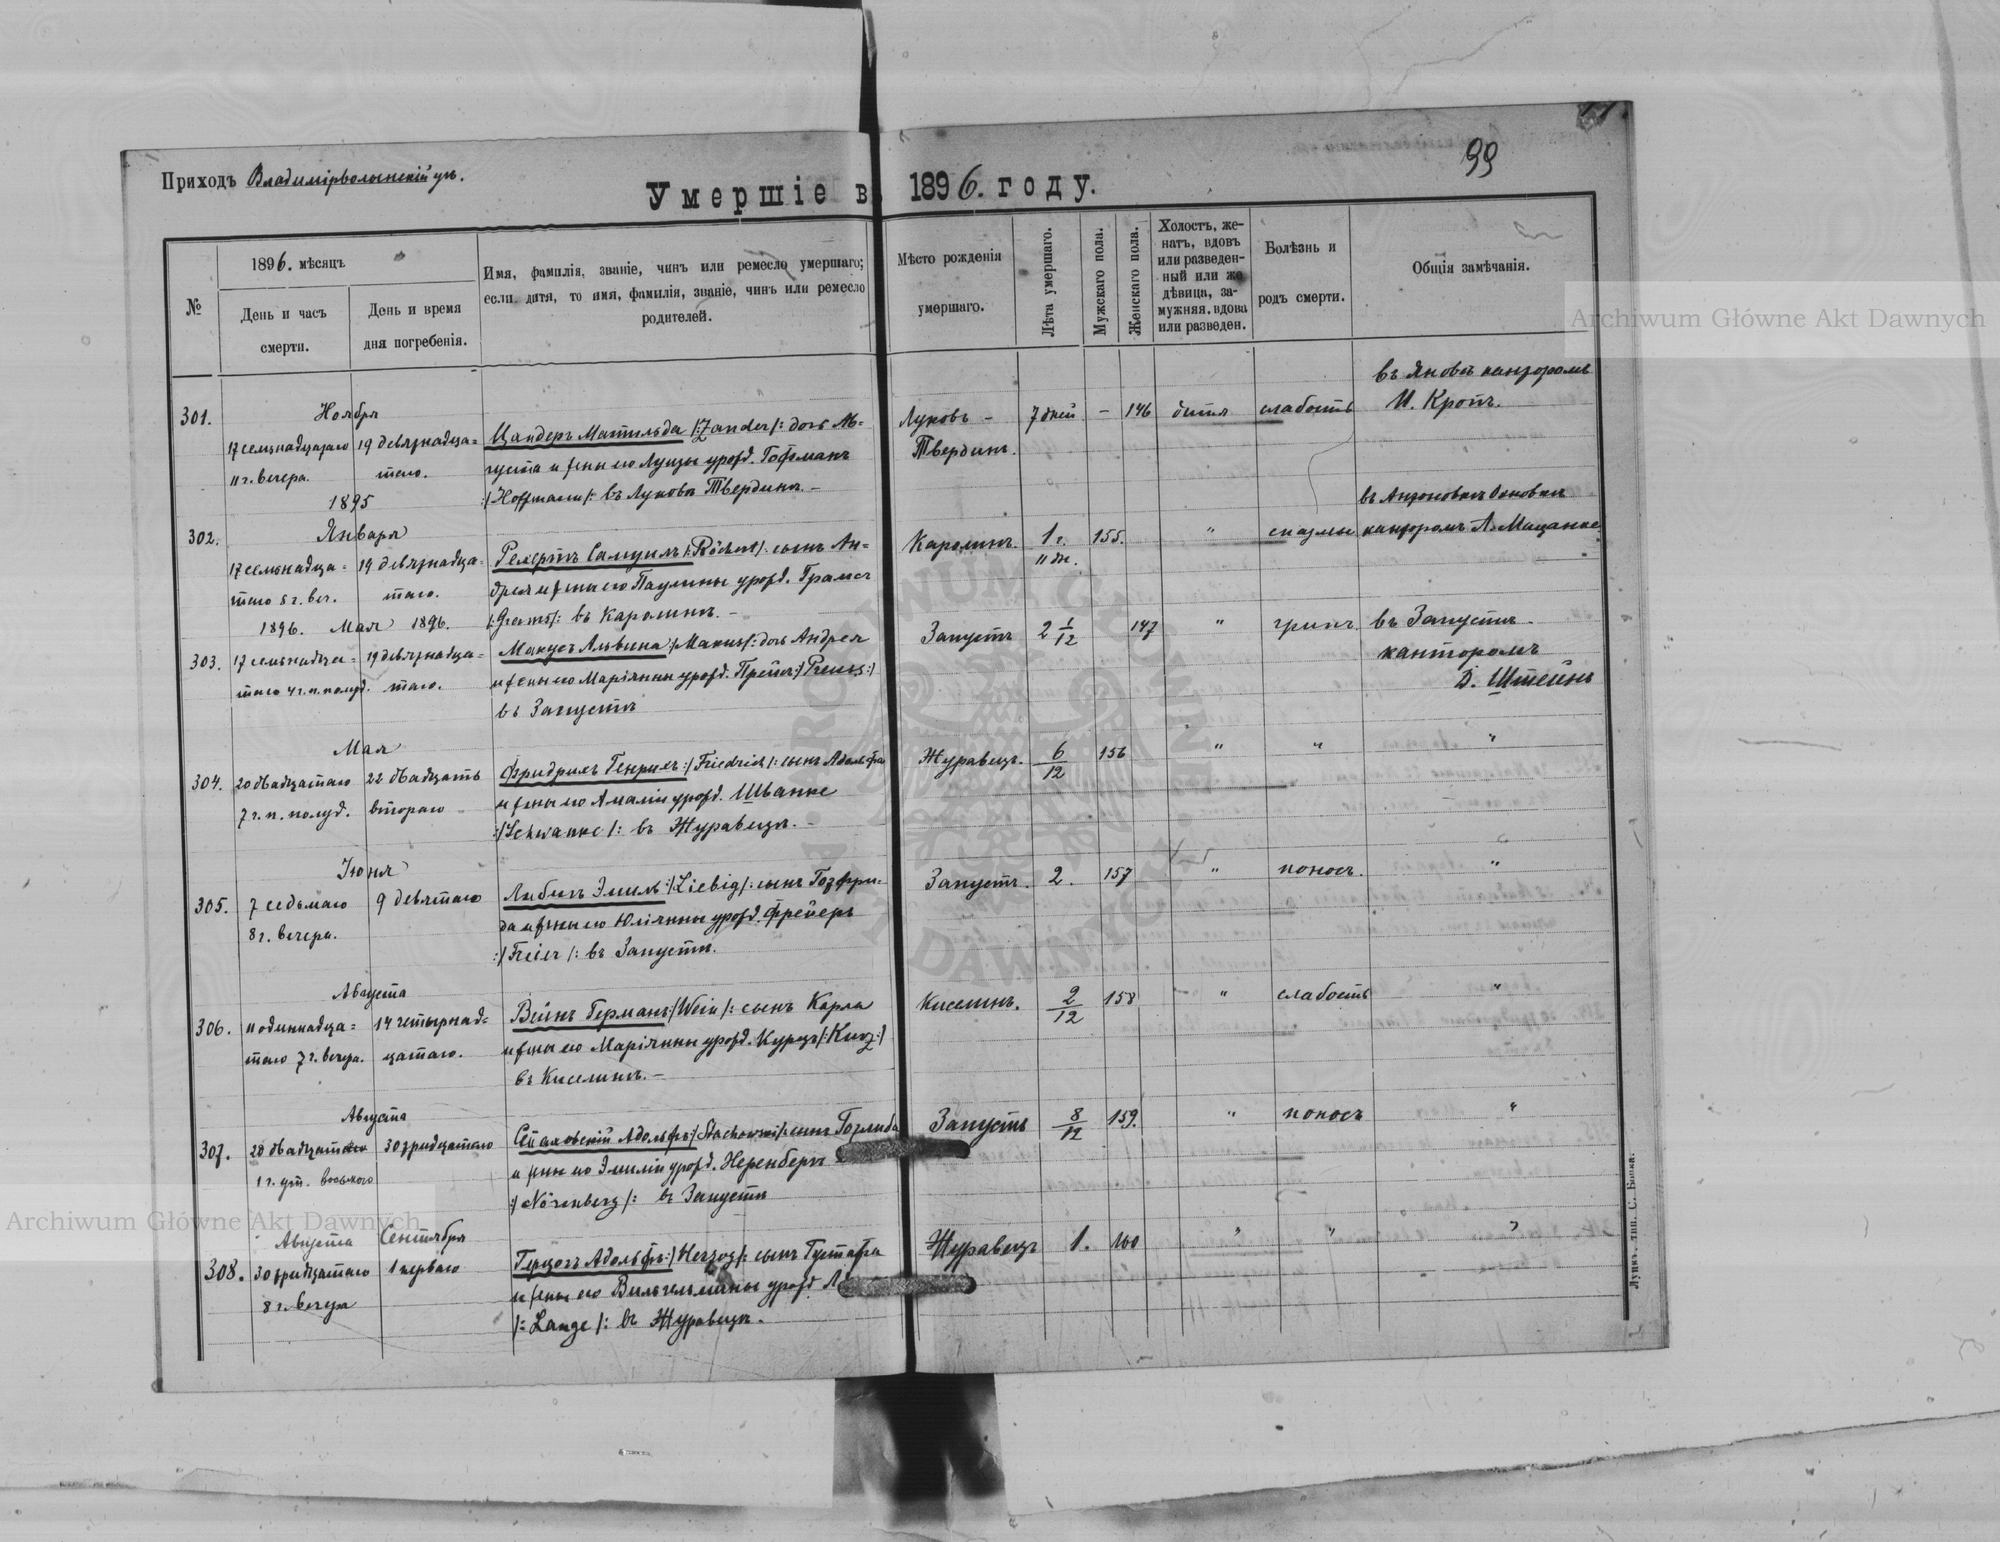 Приходъ Владимірволынскій уѣ.
Умершіе въ 1896. году.
99
№
1896. мѣсяцъ
День и часъ смерти.
День и время дня погребенія.
Имя, фамилія, званіе, чинъ или ремесло умершаго;
если дитя, то имя, фамилія, званіе, чинъ или ремесло
родителей.
Мѣсто рожденія
умершаго.
Лѣта умершаго.
Мужскаго пола.
Женскаго пола.
Холостъ, же-
натъ, вдовъ
или разведен-
ный или же
дѣвица, за-
мужняя, вдова
или разведен.
Болѣзнь и
родъ смерти.
Общія замѣчанія.
301.
Ноября
17 семьнадцатаго
11 г. вечера.
19 девятнадца=
таго.
Цандеръ Матильда /:Zander/: дочь Ав-
густа и жены его Луизы урожд. Гофманъ
:/Hoffmann/: въ Луковъ Твердинъ. –
Луковъ –
Твердинъ.
7 дней
–
146
дитя
слабость
въ Яновкѣ канторомъ
И. Кропъ.
302.
1895
Января
17 семьнадца=
таго 8 г. веч.
19 девятнадца=
таго.
Рехертъ Самуилъ /:Röchert/: сынъ Ан=
дрея и жены его Паулины урожд. Грамсъ
/:Grams/: въ Каролинѣ. –
Каролинъ.
1 г.
11 дн.
155.
"
спазмы
въ Антоновкѣ Осиовкѣ
канторомъ А. Мацанке
303.
1896. Мая 1896.
17 семьнадца=
таго 4 г. п. полуд.
19 девятнадца=
таго.
Макусъ Альвина :/Makus/: дочь Андрея
и жены его Маріянны урожд. Прейсъ :/Preuss:/
въ Запустѣ
Запустъ
2 1/12
147
"
грипъ.
въ Запустѣ
канторомъ
Д. Штейнъ
304.
Мая
20 двадцатаго
7 г. п. полуд.
22 двадцать
втораго
Фридрихъ Генрихъ :/Friedrich/: сынъ Адольфа
и жены его Амаліи урожд. Шванке
:/Schwanke/: въ Журавецъ. –
Журавецъ.
6/12
156
"
"
"
305.
Іюня
7 седьмаго
8 г. вечера.
9 девятаго
Либигъ Эмиль :/Liebig/: сынъ Готфри-
да и жены его Юліянны урожд. Фрейеръ
:/Freier/: въ Запустѣ.
Запустъ.
2.
157
"
поносъ.
"
306.
Августа
11 одиннадца=
таго 7 г. вечера.
14 четырнад=
цатаго.
Вейнъ Германъ :/Wein/: сынъ Карла
и жены его Маріянны урожд. Курцъ /:Kurz:/
въ Киселинъ. –
Киселинъ.
2/12
158
"
слабость
"
307.
Августа
28 двадцать
1 г. ут. восьмого
30 тридцатаго
Стаховскій Адольфъ :/Stachowski/: сынъ Готлиба
и жены его Эмиліи урожд. Неренбергъ
:/Nörenberg/: въ Запустѣ
Запустъ
8/12
159.
"
поносъ
"
308.
Августа
30 тридцатаго
8 г. вечера
Сентября
1 перваго
Герцогъ Адольфъ :/Herzog/: сынъ Густафа
и жены его Вильгельмины урожд.
/:Lange/: въ Журавецъ.
Журавецъ
1.
160
"
"
"
Луцкъ, тип. С. Бонка.
Archiwum Główne Akt Dawnych
Archiwum Główne Akt Dawnych
ARCHIWUM GŁÓWNE AKT DAWNYCH